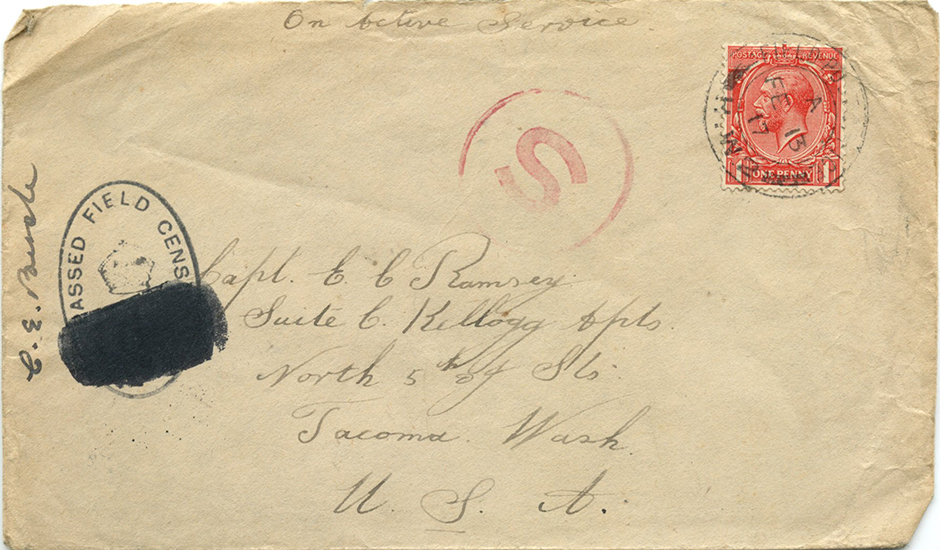 On Active Service
POSTAGE REVENUE
ONE PENNY
A
FE 13
17
S
PASSED FIELD CENS
C. E.
Capt. E. C Ramsey
Suite C. Kellogg Apts
North 5th & J Sts.
Tacoma. Wash
U. S. A.